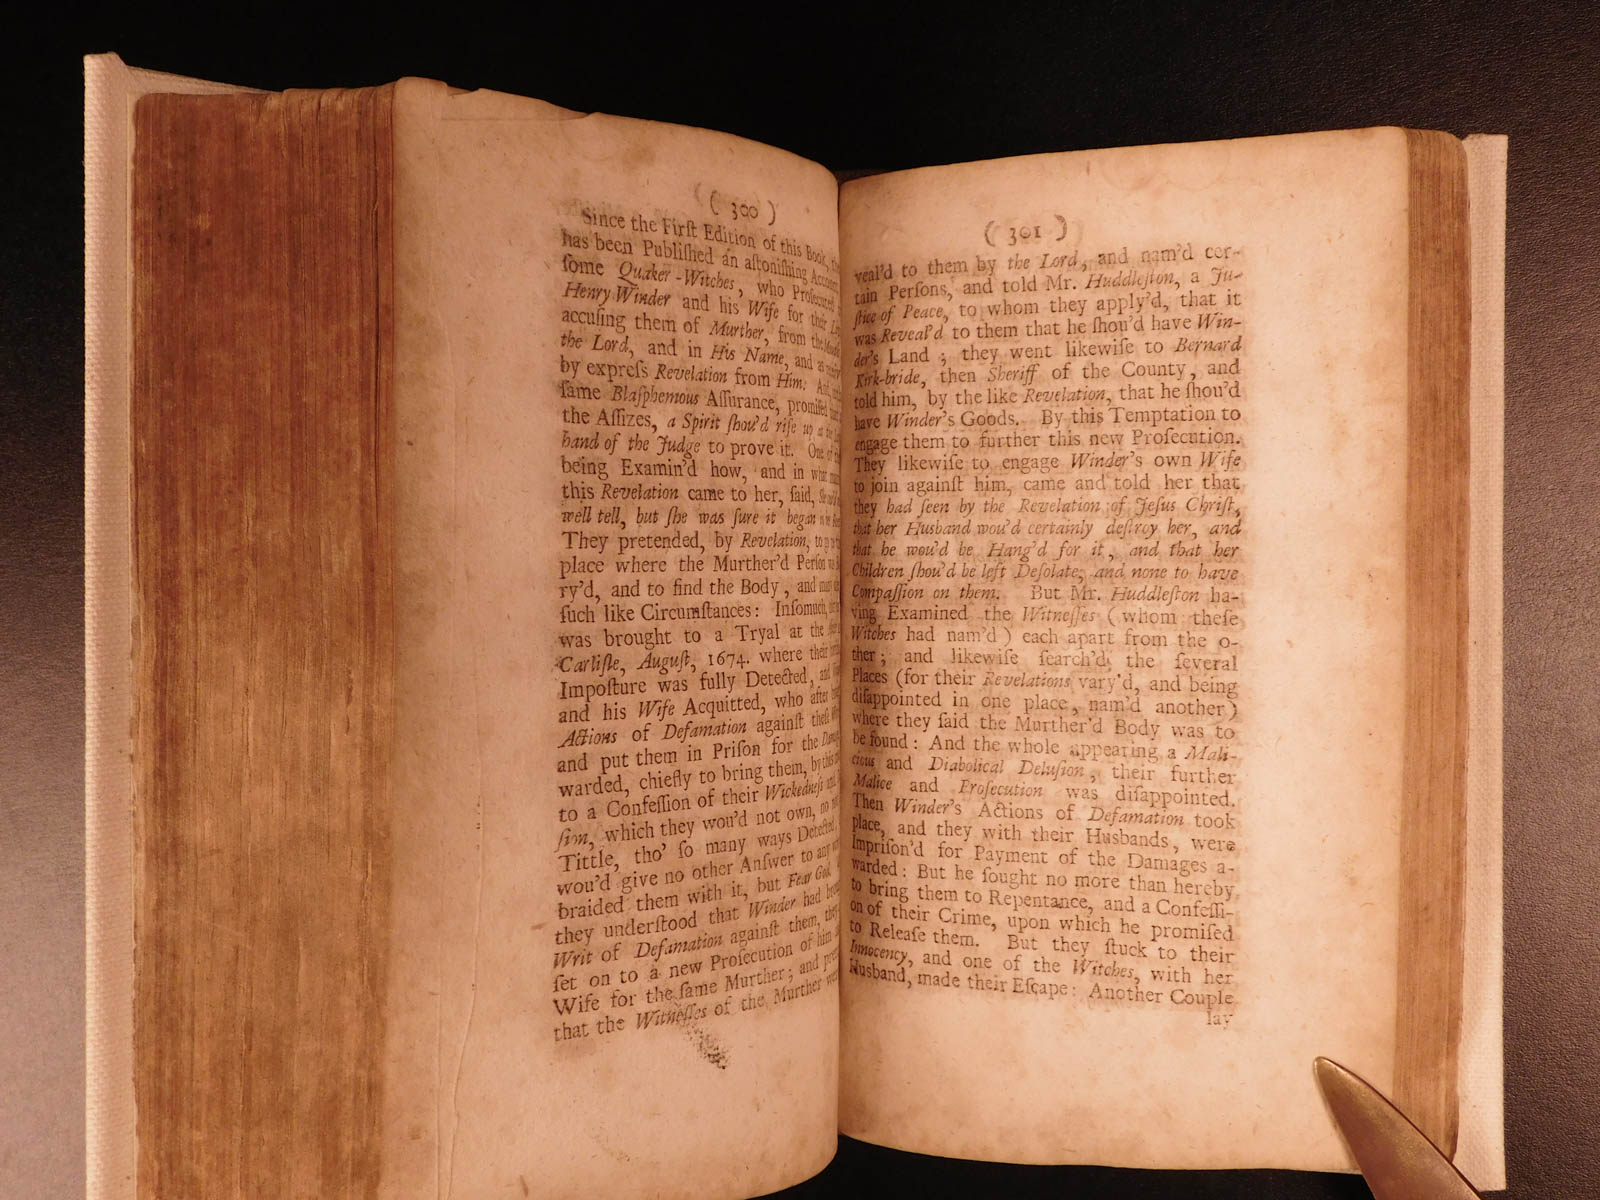 ( 300 )
Since the Firſt Edition of this Book,
has been Publiſhed an aſtoniſhing Account
ſome Quaker-Witches, who Proſecuted
Henry Winder and his Wife for their
accuſing them of Murther, from the
the Lord, and in His Name, and as
by expreſs Revelation from Him: And,
ſame Blaſphemous Aſſurance, promiſed
the Aſſizes, a Spirit ſhou'd riſe up at the
hand of the Judge to prove it. One of
being Examin'd how, and in what
this Revelation came to her, ſaid,
well tell, but ſhe was ſure it began
They pretended, by Revelation, to
place where the Murther'd Perſon
ry'd, and to find the Body, and
ſuch like Circumſtances: Inſomuch,
was brought to a Tryal at the
Carliſle, Auguſt, 1674. where their
Impoſture was fully Detected, and
and his Wife Acquitted, who after
Actions of Defamation againſt theſe
and put them in Priſon for the
warded, chiefly to bring them, by this
to a Confeſſion of their Wickedneſs
ſim, which they wou'd not own, no
Tittle, tho' ſo many ways Detected,
wou'd give no other Anſwer to any
braided them with it, but Fear God.
they underſtood that Winder had
Writ of Defamation againſt them, they
ſet on to a new Proſecution of him
Wife for the ſame Murther; and
that the Witneſſes of the Murther were
( 301 )
veal'd to them by the Lord, and nam'd cer-
tain Perſons, and told Mr. Huddleſton, a Ju-
ſtice of Peace, to whom they apply'd, that it
was Reveal'd to them that he ſhou'd have Win-
der's Land; they went likewiſe to Bernard
Kirk-bride, then Sheriff of the County, and
told him, by the like Revelation, that he ſhou'd
have Winder's Goods. By this Temptation to
engage them to further this new Proſecution.
They likewiſe to engage Winder's own Wife
to join againſt him, came and told her that
they had ſeen by the Revelation of Jeſus Chriſt,
that her Husband wou'd certainly deſtroy her, and
that he wou'd be Hang'd for it, and that her
Children ſhou'd be left Deſolate, and none to have
Compaſſion on them. But Mr. Huddleſton ha-
ving Examined the Witneſſes (whom theſe
Witches had nam'd) each apart from the o-
ther; and likewiſe ſearch'd the ſeveral
Places (for their Revelations vary'd, and being
diſappointed in one place, nam'd another)
where they ſaid the Murther'd Body was to
be found: And the whole appearing a Mali-
cious and Diabolical Deluſion, their further
Malice and Proſecution was diſappointed.
Then Winder's Actions of Defamation took
place, and they with their Husbands, were
Impriſon'd for Payment of the Damages a-
warded: But he ſought no more than hereby
to bring them to Repentance, and a Confeſſi-
on of their Crime, upon which he promiſed
to Releaſe them. But they ſtuck to their
Innocency, and one of the Witches, with her
Husband, made their Eſcape: Another Couple
lay